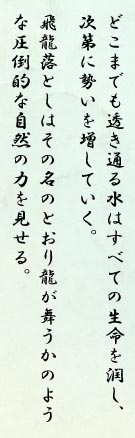 どこまでも透き通る水はすべての生命を潤し、
次第に勢いを増していく。
飛龍落としはその名のとおり龍が舞うかのよう
な圧倒的な自然の力を見せる。